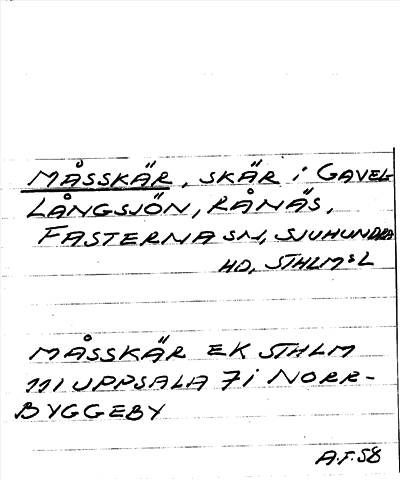 MÅSSKÄR, SKÄR i GAVEL-
LÅNGSJÖN, RÅNÄS,
FASTERNA SN, SJUHUNDRA
HD, STHLMS L
MÅSSKÄR EK STHLM
111 UPPSALA 7i NORR-
BYGGEBY
A.F.58